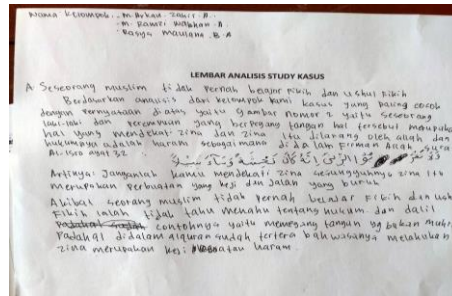 Nama kelompok : M. Arkan Zahir. A.
- M. Ramzi Wabhan. A
- Rasya Maulana. B. A
LEMBAR ANALISIS STUDY KASUS
A. Seseorang muslim tidak pernah belajar fikih dan ushul fikih
Berdasarkan analisis dari kelompok kami kasus yang paling cocok
dengan Pernyataan diatas yaitu gambar nomor 2 yaitu seseorang
laki-laki dan perempuan yang berpegang tangan hal tersebut merupakan
hal yang mendekat zina dan zina itu dilarang oleh allah dan
hukumnya adalah haram sebagaimana di dalam Firman Allah, sura
Al-isro ayat 32
الزِّنٰىٓ اِنَّهٗ كَانَ فَاحِشَةً وَسَآءَ سَبِيْلًا
Artinya: Janganlah kamu mendekati zina sesungguhnya zina itu
merupakan Perbuatan yang keji dan Jalan yang buruk
Akibat seorang muslim tidak pernah belajar Fikih dan ush
Fikih ialah tidak tahu menahu tentang hukum dan dalil
contohnya yaitu memegang tangan yg bukan muhr
Padahal didalam alquran sudah tertera bahwasanya melakukan
zina merupakan keji atau haram.